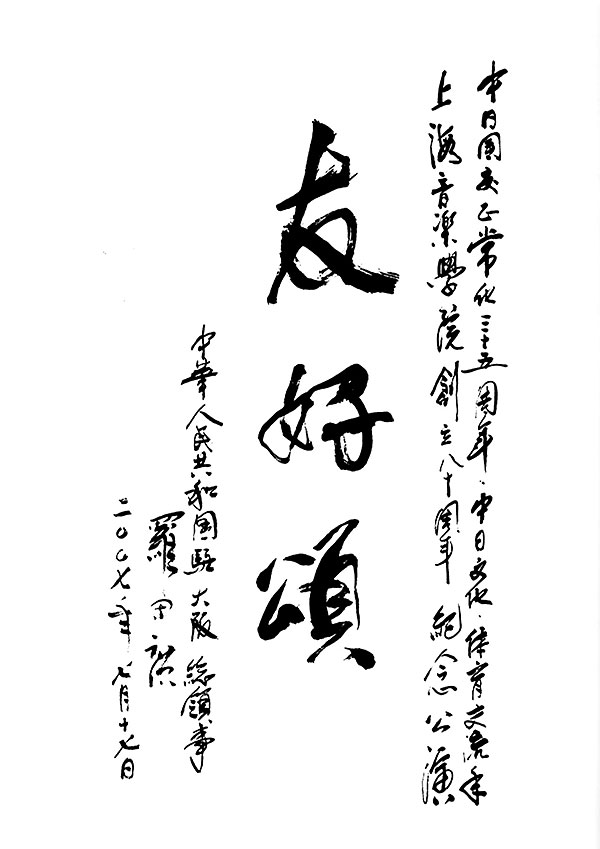 中日国交正常化三十五周年・中日文化・体育交流年
上海音楽學院創立八十周年 紀念公演
友好頌
中華人民共和国駐大阪総領事
羅田廣
二〇〇七年七月十七日